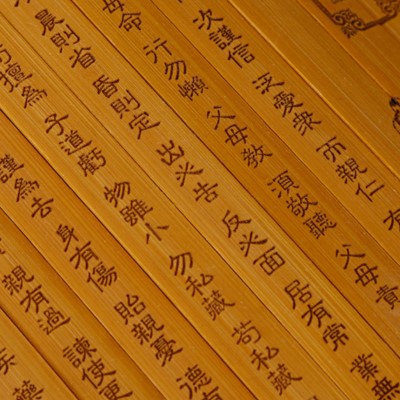 次謹信 泛愛眾 而親仁 有
母命 行勿懶 父母教 須敬聽 父母責
晨則省 昏則定 出必告 反必面 居有常 業無
擅為 子道虧 物雖小 勿私藏 苟私藏
謹為去 身有傷 貽親憂 德有
親有過 諫使更
藥